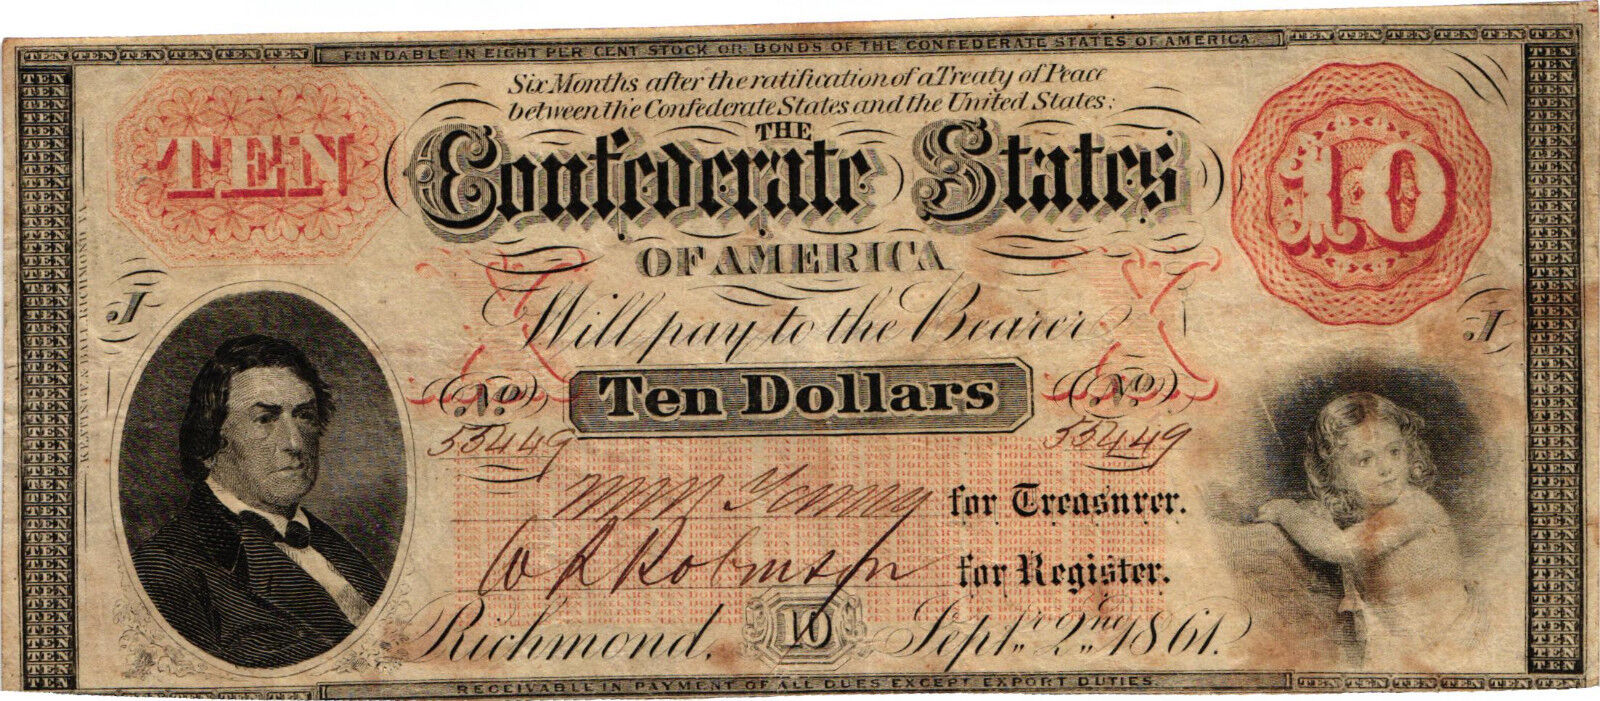 FUNDABLE IN EIGHT PER CENT STOCK OR BONDS OF THE CONFEDERATE STATES OF AMERICA
Six Months after the ratification of a Treaty of Peace
between the Confederate States and the United States;
THE
TEN
Confederate States
10
OF AMERICA
X X
Will pay to the Bearer
J J
Ten Dollars
No. No.
55449 55449
for Treasurer.
W R Robinson for Register.
Richmond, 10 Septr. 2nd 1861.
RECEIVABLE IN PAYMENT OF ALL DUES EXCEPT EXPORT DUTIES.